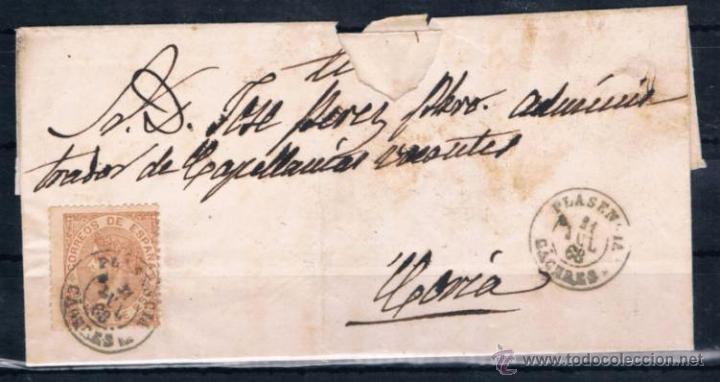 Sr. D. Jose Perez Pbro. adminis
trador de Capellanias vacantes
Coria
CORREOS DE ESPAÑA
PLASENCIA
CACERES
PLASENCIA
CACERES
www.todocoleccion.net